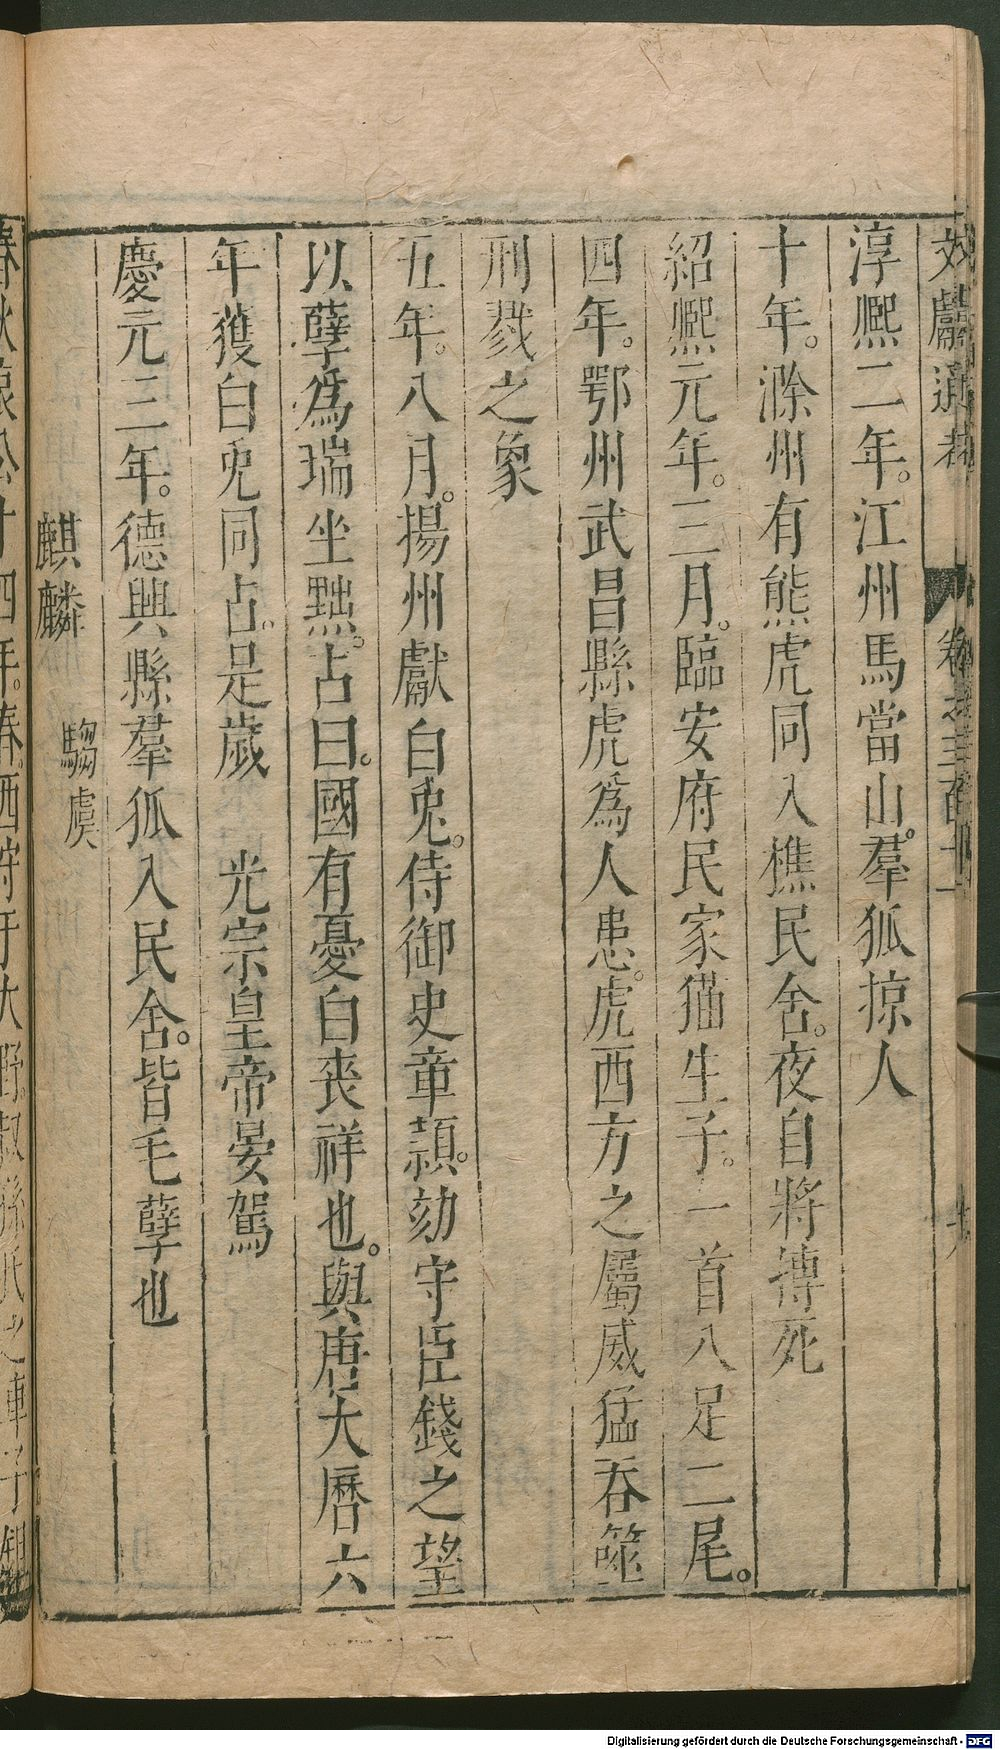 文獻通考 卷之三百十一
淳熈二年。江州馬當山。羣狐掠人
十年。滁州有熊虎同入樵民舍。夜自將摶死
紹熈元年。三月。臨安府民家猫生子。一首八足二尾。
四年。鄂州武昌縣虎爲人患。虎西方之屬威猛吞噬
刑戮之象
五年。八月。揚州獻白兎。侍御史章頴。劾守臣錢之望
以孽爲瑞坐黜。占曰。國有憂白喪祥也。與唐大曆六
年獲白兎同占。是歲 光宗皇帝晏駕
慶元三年。德興縣羣狐入民舍。皆毛孽也
麒麟 騶虞
春秋哀公十四年。春。西狩于大野。叔孫氏之車子鉏
Digitalisierung gefördert durch die Deutsche Forschungsgemeinschaft - DFG